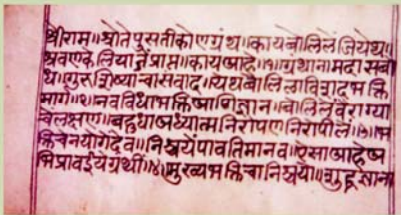 श्रीराम॥श्रोते पुसती कोण ग्रंथ॥काय बोलिलें जि येथ॥
श्रवण केलियानें प्राप्त॥काय आहे॥१॥ग्रंथा नाम दासबो
ध॥गुरुशिष्याचा संवाद॥येथ बोलिला विशद भक्ति
मार्ग॥२॥नवविधा भक्ति आणि ज्ञान॥बोलिलें वैराग्या
चें लक्षण॥बहुधा अध्यात्म निरोपण निरोपीलें॥३॥भ
क्तिचेन योगें देव॥निश्चयें पावति मानव॥ऐसा आहे अ
भिप्राव ईये ग्रंथीं॥४॥मुख्य भक्तिचा निश्चयो॥शुद्ध ज्ञाना